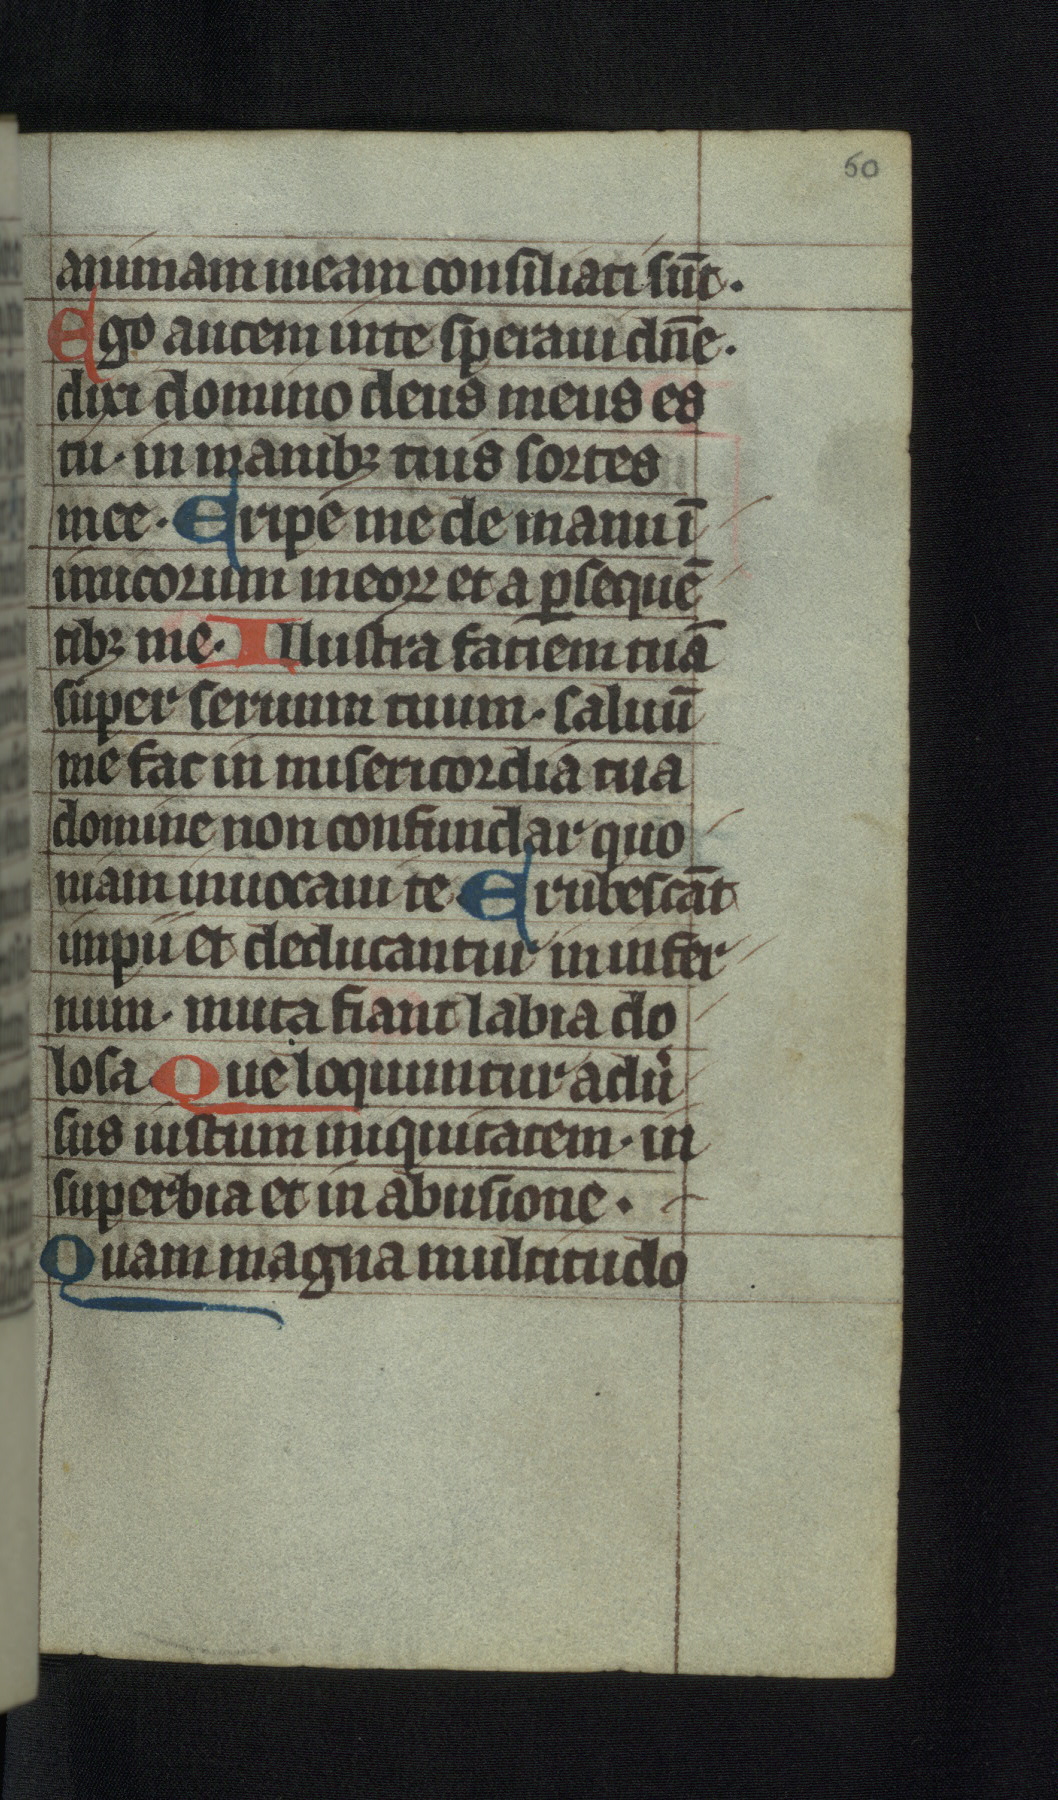 60
animam meam consiliati sūt.
Ego autem in te speraui dn̄e.
dixi domino deus meus es
tu. in manibꝫ tuis sortes
mee. Eripe me de manu ī
imicorum meoꝝ et a ꝑsequē
tibꝫ me. Illustra faciem tuā
super seruum tuum. saluū
me fac in misericordia tua
domine non confundar quo
niam inuocaui te Erubescāt
impii et deducantur in infer
num. muta fiant labia do
losa Que loquuntur adu͛
sus iustum iniquitatem. in
superbia et in abusione.
Quam magna multitudo